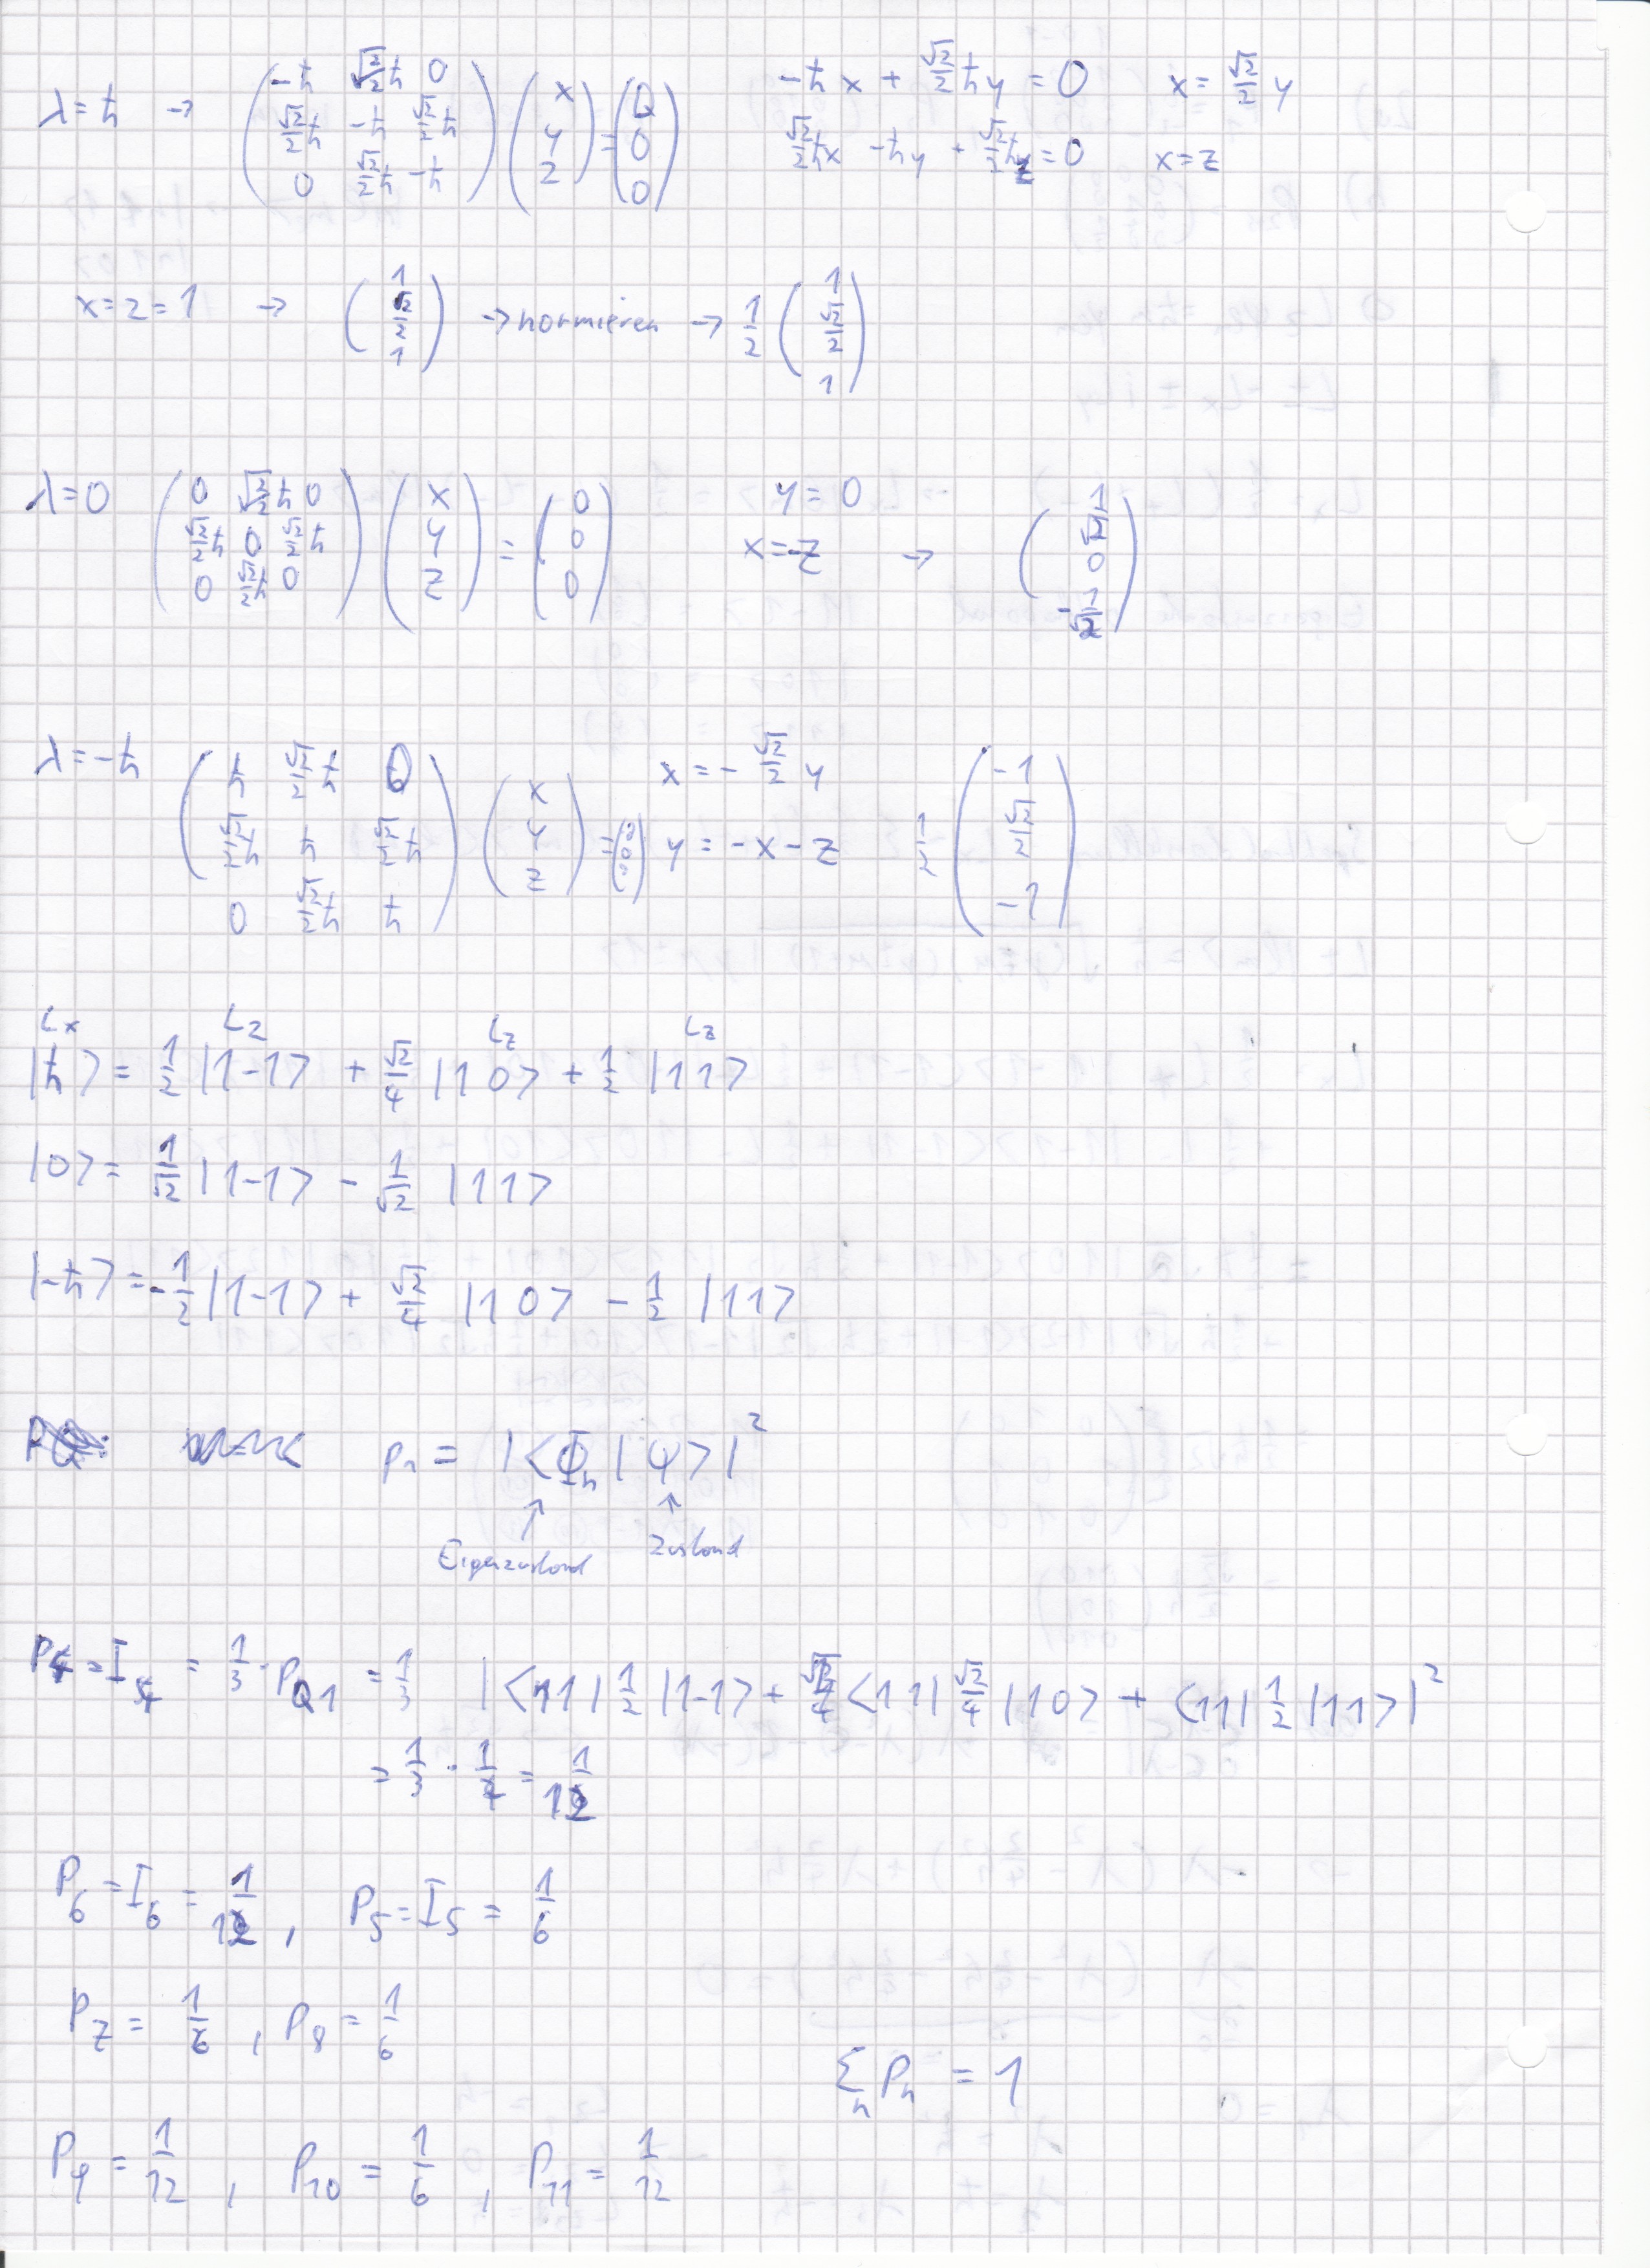 λ = ħ → ( -ħ √2/2 ħ 0 ; √2/2 ħ -ħ √2/2 ħ ; 0 √2/2 ħ -ħ ) ( x ; y ; z ) = ( 0 ; 0 ; 0 ) -ħx + √2/2 ħy = 0 x = √2/2 y
√2/2 ħx - ħy + √2/2 ħz = 0 x = z
x = z = 1 → ( 1 ; √2/2 ; 1 ) → normieren → 1/2 ( 1 ; √2/2 ; 1 )
λ = 0 ( 0 √2/2 ħ 0 ; √2/2 ħ 0 √2/2 ħ ; 0 √2/2 ħ 0 ) ( x ; y ; z ) = ( 0 ; 0 ; 0 ) y = 0
x = -z → ( 1/√2 ; 0 ; -1/√2 )
λ = -ħ ( ħ √2/2 ħ 0 ; √2/2 ħ ħ √2/2 ħ ; 0 √2/2 ħ ħ ) ( x ; y ; z ) = ( 0 ; 0 ; 0 ) x = -√2/2 y
y = -x - z 1/2 ( -1 ; √2/2 ; -1 )
Lx Lz Lz Lz
|ħ> = 1/2 |1-1> + √2/4 |1 0> + 1/2 |11>
|0> = 1/√2 |1-1> - 1/√2 |11>
|-ħ> = -1/2 |1-1> + √2/4 |1 0> - 1/2 |11>
Pn = |<Φn | ψ>|²
Eigenzustand Zustand
P4 = I4 = 1/3 · PQ1 = 1/3 |<11| 1/2 |1-1> + √2/4 <11| √2/4 |10> + <11| 1/2 |11>|²
= 1/3 · 1/4 = 1/12
P6 = I6 = 1/12 , P5 = I5 = 1/6
P7 = 1/6 , P8 = 1/6
Σn Pn = 1
P9 = 1/12 , P10 = 1/6 , P11 = 1/12